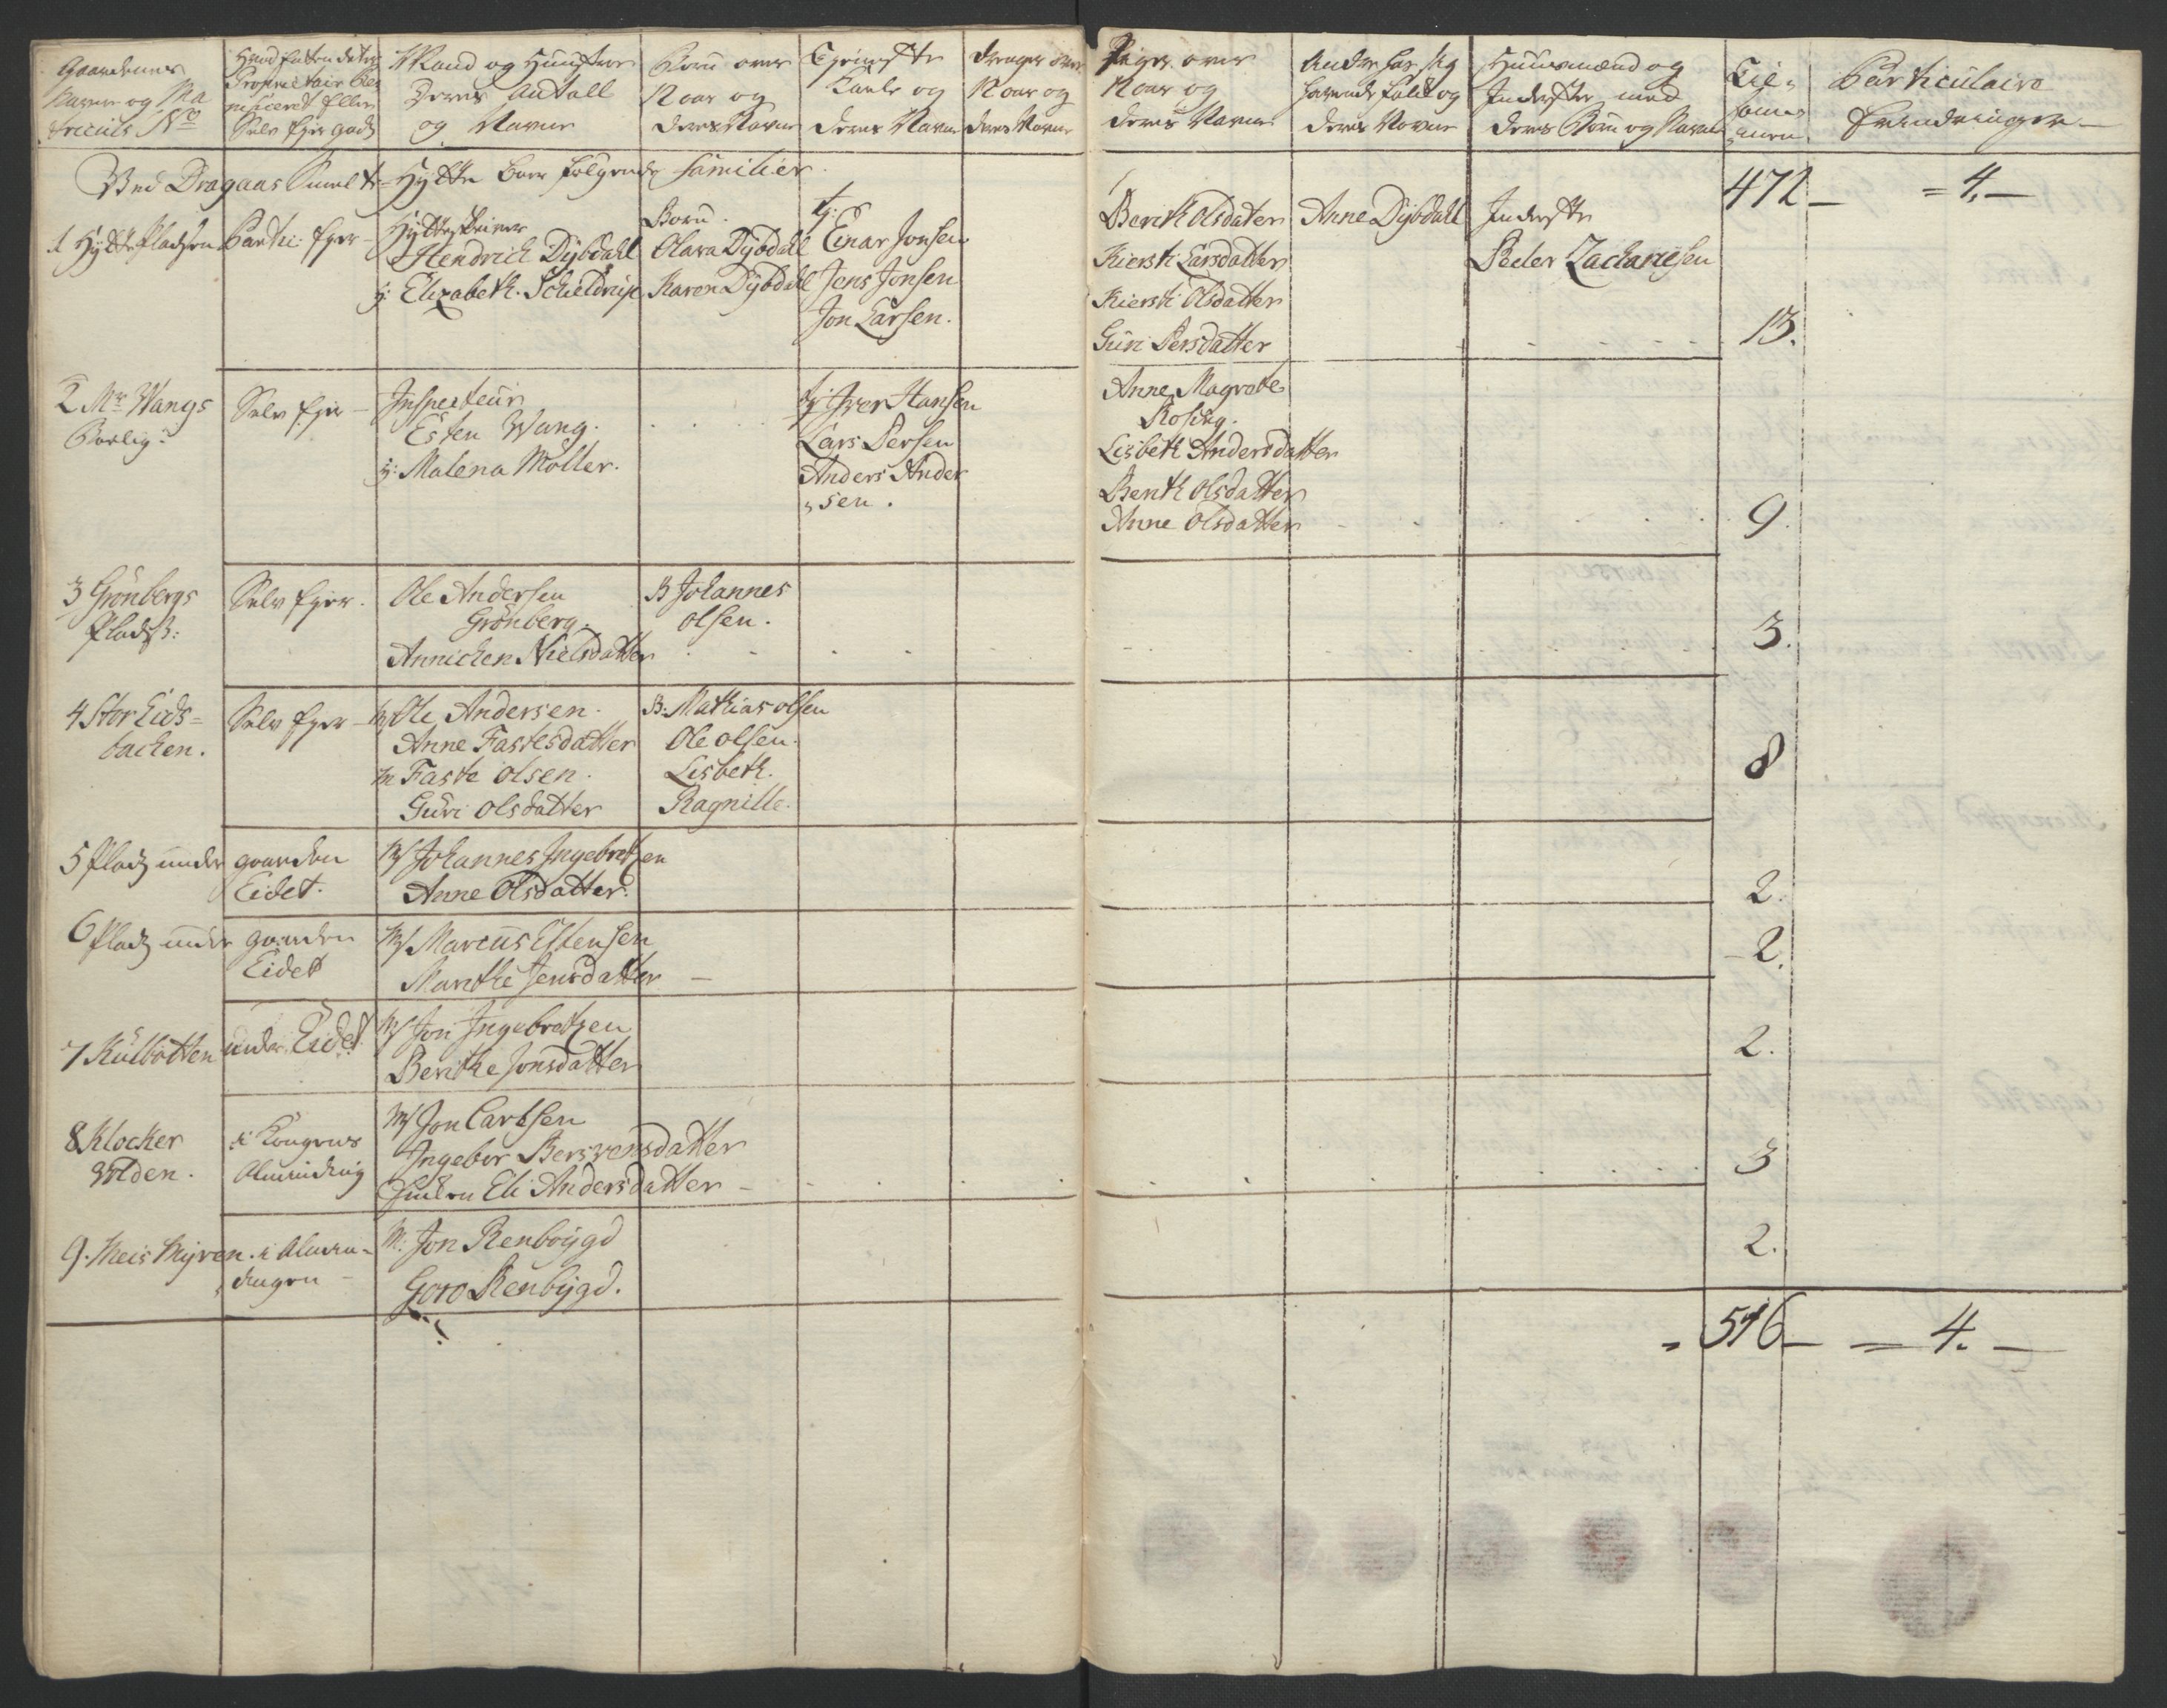 Gaardenes
Navne og Ma
tricul No
Selv Ejer gods
Mand og Hunstroe
Deres Antall
og Navne
Børn over
12 Aar og
deres Navne
Tjeneste
Karle og
deres Navne
Drenge over
12 Aar og
deres Navne
Piger over
12 Aar og
deres Navne
deres Navne
Huusmænd og
Inderster med
deres Børn og Navne
Particulaire
Erindringer
Ved Dragaas Smelte-Hytte boer følgende familier
472 — = 4. —
1 Hytte Pladsen Parti: Ejer —
Hytteskriver
Hendrich Dybdahl
Elizabeth Schieldrup
Børn.
Olava Dybdahl
Karen Dybdahl
Einar Jonsen
Jens Jonsen
Jon Larsen.
Berith Olsdater
Kiersti Larsdatter
Kiersti Olsdatter
Guri Persdatter
Anne Dybdahl
Inderste
Peder Zachariesen
13.
2 Mr Wangs
Boelig:
Selv Ejer —
Inspecteur
Esten Wang.
Malena Möller.
Iver Hansen
Lars Persen
Anders Ander
sen.
Anne Magrete
Rosing.
Lisbeth Andersdatter
Berith Olsdatter
Anne Olsdatter
9.
3 Grönbergs
Plads:
Selv Ejer.
Ole Andersen
Grönberg.
Annichen Nielsdatter
B Johannes
Olsen.
3.
4 Stor Eids=
backen.
Selv Ejer —
M Ole Andersen.
Anne Fastesdatter
M Faste Olsen.
Guri Olsdatter
B. Mathias Olsen
Ole Olsen.
Lisbeth.
Ragnille.
8
5 Plads under gaarden
Eidet.
M Johannes Ingebretzen
Anne Olsdatter.
2.
6 Plads under gaarden
Eidet
M Marcus Estensen
Marithe Jensdatter
2.
7 Kulbotten under Eidet
M Jon Ingebretzen
Berithe Jonsdatter
2.
8 Klocker
Volden.
i Kongens
Alminding
M Jon Carlsen
Ingebor Bersvensdatter
Eli Andersdatter —
3
9. Meis Myren. i Almin-
dingen —
M. Jon Renböygd
Goro Renbygd.
2.
= 516 — = 4. —